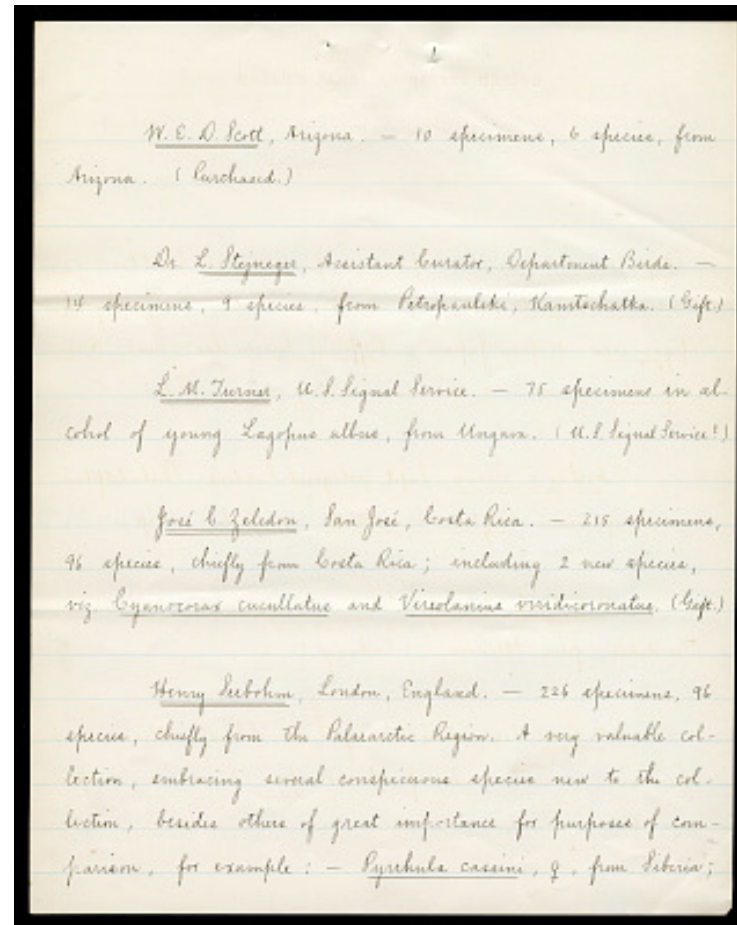 W. E. D. Scott, Arizona. — 10 specimens, 6 species, from
Arizona. (Purchased.)
Dr L. Stejneger, Assistant Curator, Department Birds. —
14 specimens, 9 species, from Petropaulski, Kamtschatka. (Gift.)
L. M. Turner, U.S. Signal Service. — 75 specimens in al-
cohol of young Lagopus albus, from Ungava. (U.S. Signal Service!)
José C. Zeledon, San José, Costa Rica. — 215 specimens,
96 species, chiefly from Costa Rica; including 2 new species,
viz Cyanocorax cucullatus and Vireolanius viridicoronatus. (Gift.)
Henry Seebohm, London, England. — 226 specimens, 96
species, chiefly from the Palaearctic Region. A very valuable col-
lection, embracing several conspicuous species new to the col-
lection, besides others of great importance for purposes of com-
parison, for example: — Pyrrhula cassini, ♀, from Siberia;